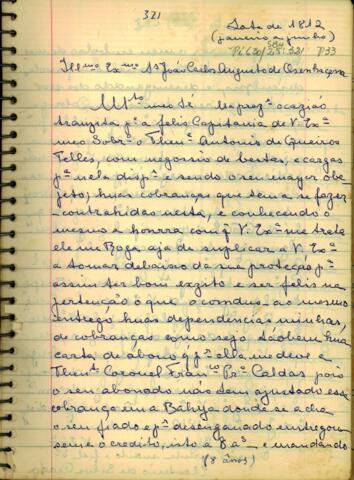 321
Data de 1812
(janeiro a junho)
Pi 620/ 281.321 P33
Illmo Exmo Sr João Carlos Augusto de Oeenhaçem
Mto meo Sr Na prezte ocazião
tranzita pa a felis Capitania de V. Exa
meo Sobro o Thene Antonio de Queiros
Telles, com negossio de bestas, e cargas
pa nela dispr e sendo o seu mayor obe-
jeto, huas cobranças que tem a se fazer
contrahidas nesta, e conhecendo o
mesmo a honrra com q V. Exa me trata
ele me Roga aja de suplicar a V. Exa
a tomar debaixo da sua proteção pa
assim ter bom exzito e ser felis na
pertenção o que acomdus. ao mesmo
entrego huas dependencias minhas,
de cobranças como sejo tãobem hua
carta de abono q pr ela me deve o
Thente Coronel Franco Pra Caldas pois
o seu abonado não tem ajustado essa
cobrança em a Bahya donde se acha
o seu fiado e pr desenganado entregou
seme o credito, isto a 8 as e mandando
(8 anos)